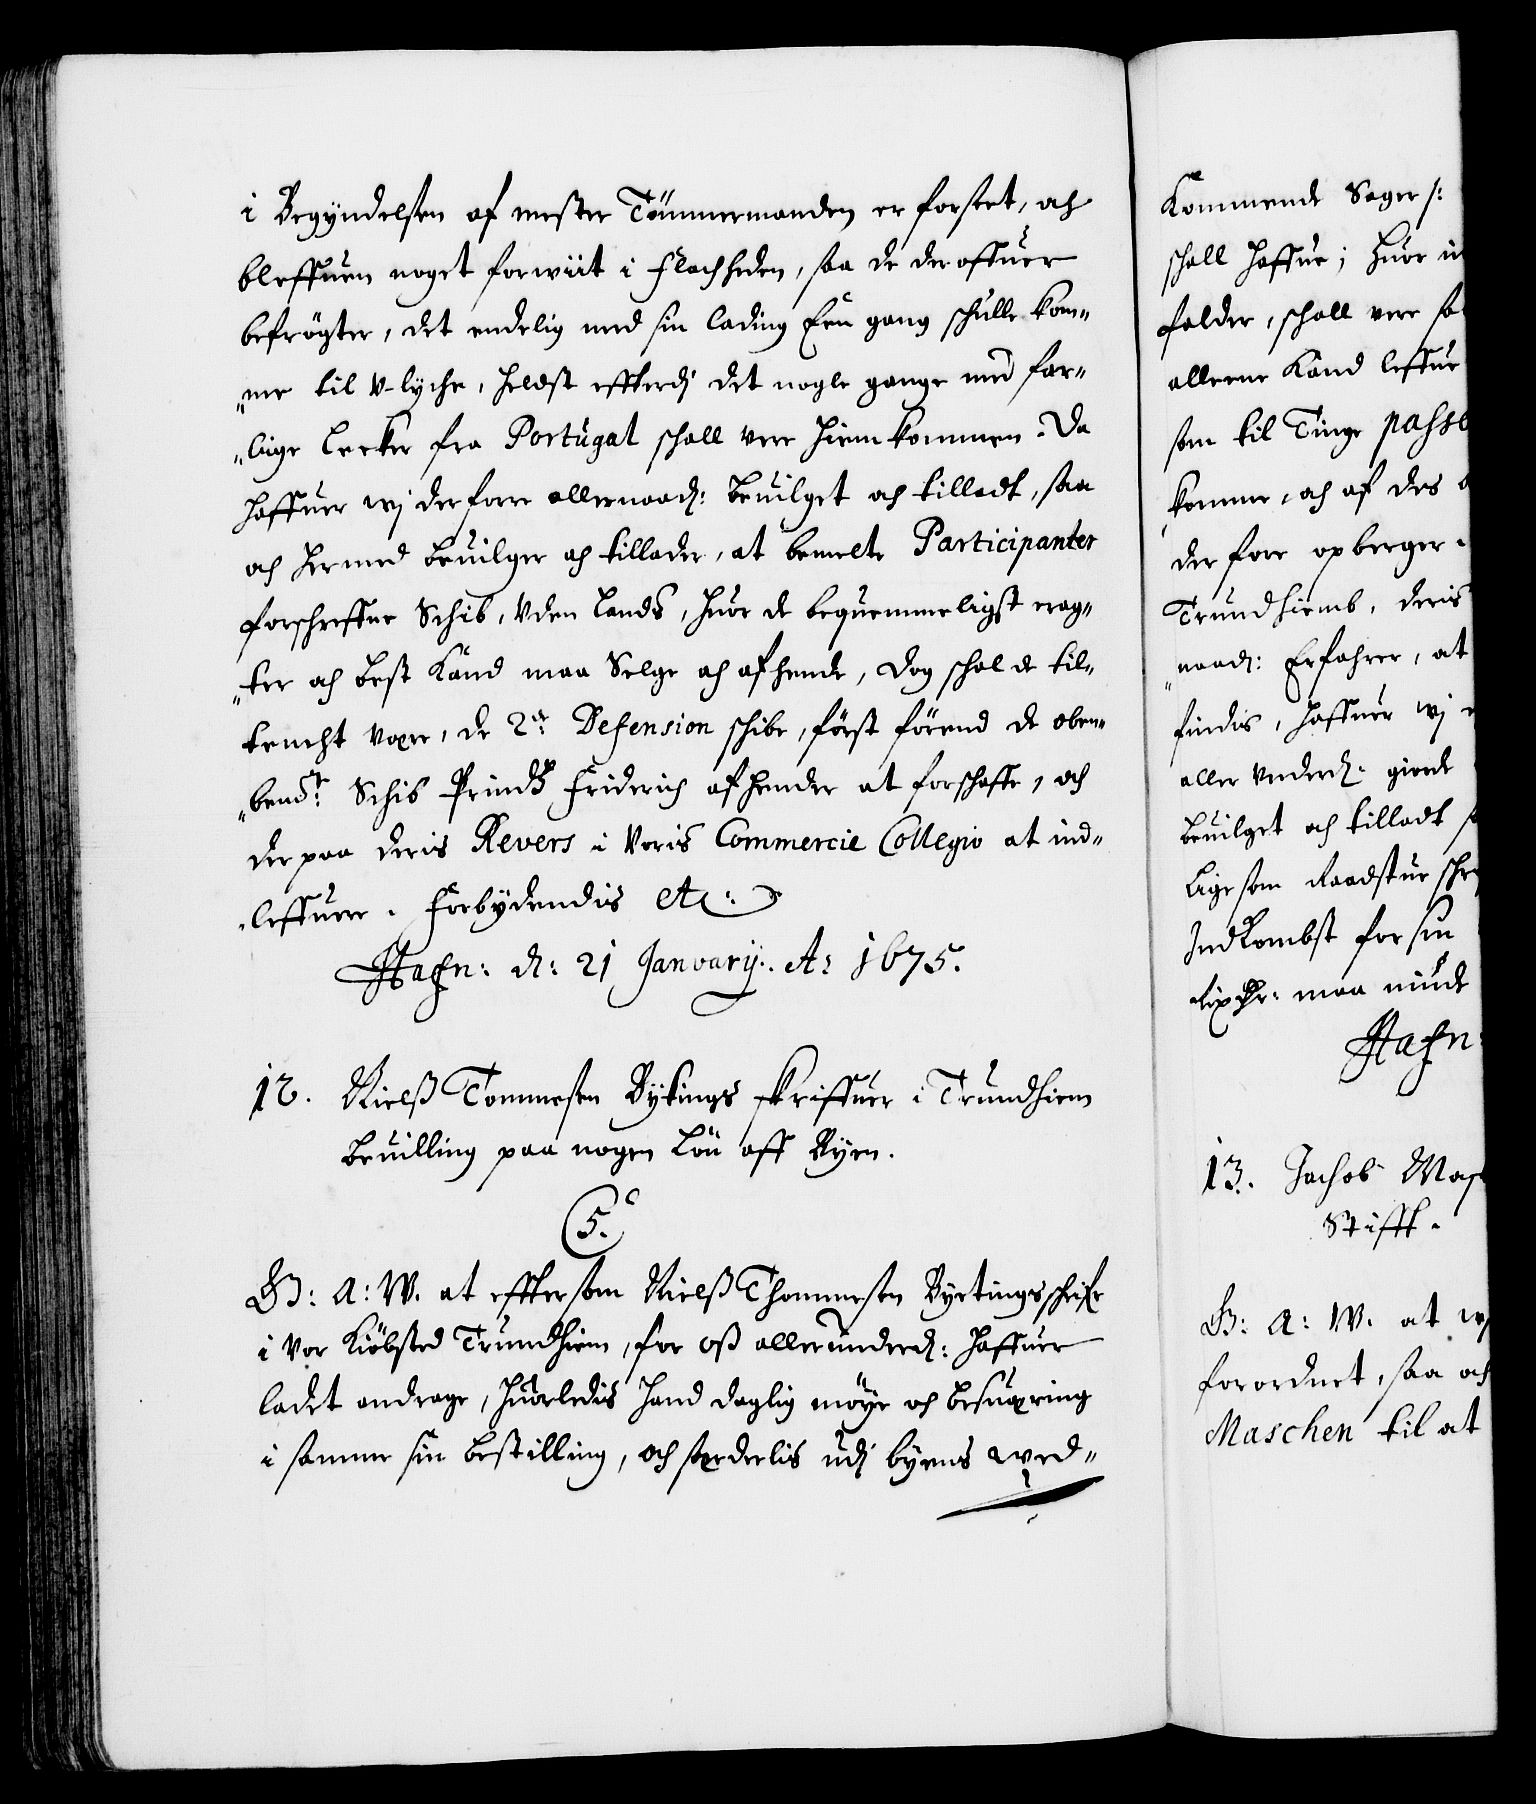 i Begÿndelsen af mester Tömmermanden er forseet, och
bleffuen noget forwiit i Flachheden, saa de der offuer
befrögter, det endelig med sin lading Een gang schulle kom„
„me til V-lÿche, heldst effterdj det nogle gange med far„
„lige Lecker fra Portugal schall vere hiem kommen. Da
haffuer wj derfore allernaad: beuilget och tilladt, saa
och hermed beuilger och tillader, at bemelte Participanter
forschreffne Schib, Uden Lands, huor de bequemmeligst erag„
„ter och best Kand maa Selge och afhende, dog schal de til„
tencht were, de 2de Defension schibe, först förend de oben„
„bendte: Schib Prindtz Friderich afhender at forschaffe, och
der paa deris Revers i Voris Commercie Collegio at ind„
„leffuere. Forbÿdendis etc:
Hafn: d: 21 Januarij: Ao: 1675.
12. Nielß Tommesen Bÿtings skriffuer i Trundhiem
beuilling paa nogen Lön aff Bÿen.
5.
G: A: W. at efftersom Nielß Thommesen Bÿetingsschrifr
i Vor Kiöbsted Trundhiem, for oß allerunderd: haffuer
ladet andrage, huorledis hand daglig möÿe och besuæring
i samme sin bestilling, och særdeelis udj bÿens wed„
Kommende Sager /:
schall haffue; huor u
falder, schall vere sa
alleene Kand leffue
som til Tinge passe
komme, och af des
derfore opberger.
Trundhiemb, deris
„naad: Erfahrer, at
findis, haffuer wj
aller underd: giorde
beuilget och tilladt
Lige som Raadstue schr
Indkombst for sin
rixdr: maa niude
Hafn:
13. Jachob Mas
Stifft.
G: A: W. at wj
forordnet, saa och
Maschen til at